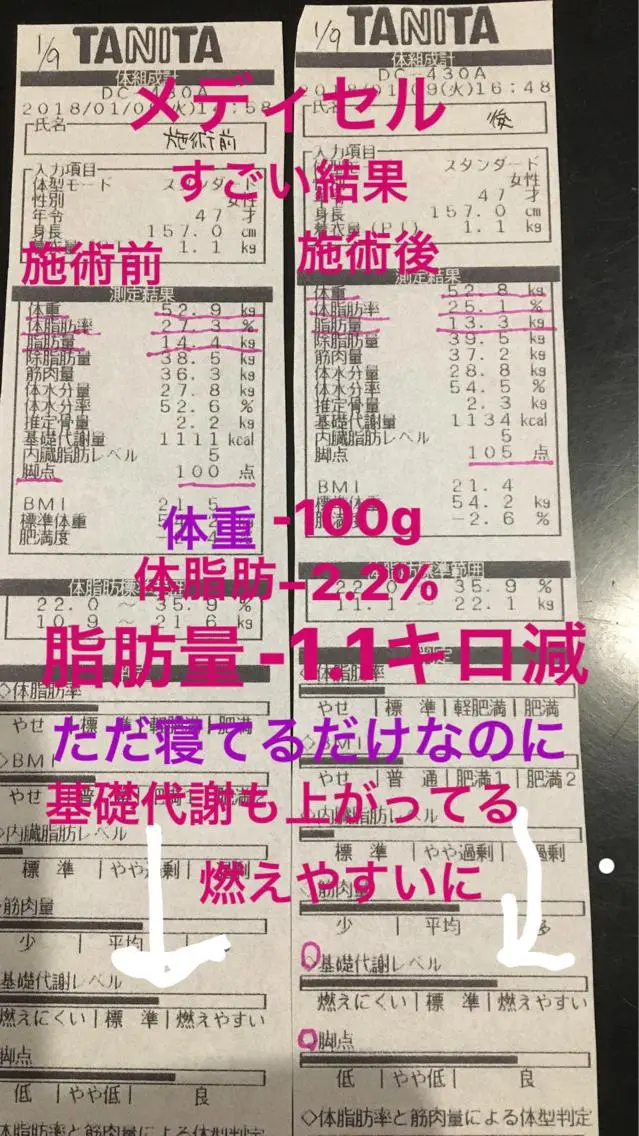 1/9 TANITA
体組成計
DC-430A
氏名
施術前
入力項目
体型モード スタンダード
性別 女性
年令 47 才
身長 157.0 cm
1.1 kg
施術前
測定結果
体重 52.9 kg
体脂肪率 27.3 %
脂肪量 14.4 kg
除脂肪量 38.5 kg
筋肉量 36.3 kg
体水分量 27.8 kg
体水分率 52.6 %
推定骨量 2.2 kg
基礎代謝量 1111 kcal
内臓脂肪レベル 5
脚点 100 点
BMI 21.5
標準体重
肥満度
22.0 ~ 35.9 %
10.9 ~ 21.6 kg
◇体脂肪率
◇BMI
◇内臓脂肪レベル
標 準 | やや過剰 |
筋肉量
少 | 平均
基礎代謝レベル
燃えにくい | 標 準 | 燃えやすい
脚点
低 | やや低 | 良
体脂肪率と筋肉量による体型判定
1/9 TANITA
体組成計
DC-430A
(火)16:48
後
スタンダード
女性
47 才
身長 157.0 cm
1.1 kg
施術後
測定結果
体重 52.8 kg
体脂肪率 25.1 %
脂肪量 13.3 kg
除脂肪量 39.5 kg
筋肉量 37.2 kg
体水分量 28.8 kg
体水分率 54.5 %
推定骨量 2.3 kg
基礎代謝量 1134 kcal
内臓脂肪レベル 5
脚点 105 点
BMI 21.4
標準体重 54.2 kg
肥満度 -2.6 %
22.0 ~ 35.9 %
11.1 ~ 22.1 kg
やせ | 標 準 | 軽肥満 | 肥満
◇BMI
やせ | 普 通 | 肥満1 | 肥満2
内臓脂肪レベル
標 準 | やや過剰 | 過剰
◇筋肉量
少 | 平均 | 多
◇基礎代謝レベル
燃えにくい | 標 準 | 燃えやすい
◇脚点
低 | やや低 | 良
◇体脂肪率と筋肉量による体型判定
メディセル
すごい結果
体重 -100g
体脂肪-2.2%
脂肪量 -1.1キロ減
ただ寝てるだけなのに
基礎代謝も上がってる
燃えやすいに